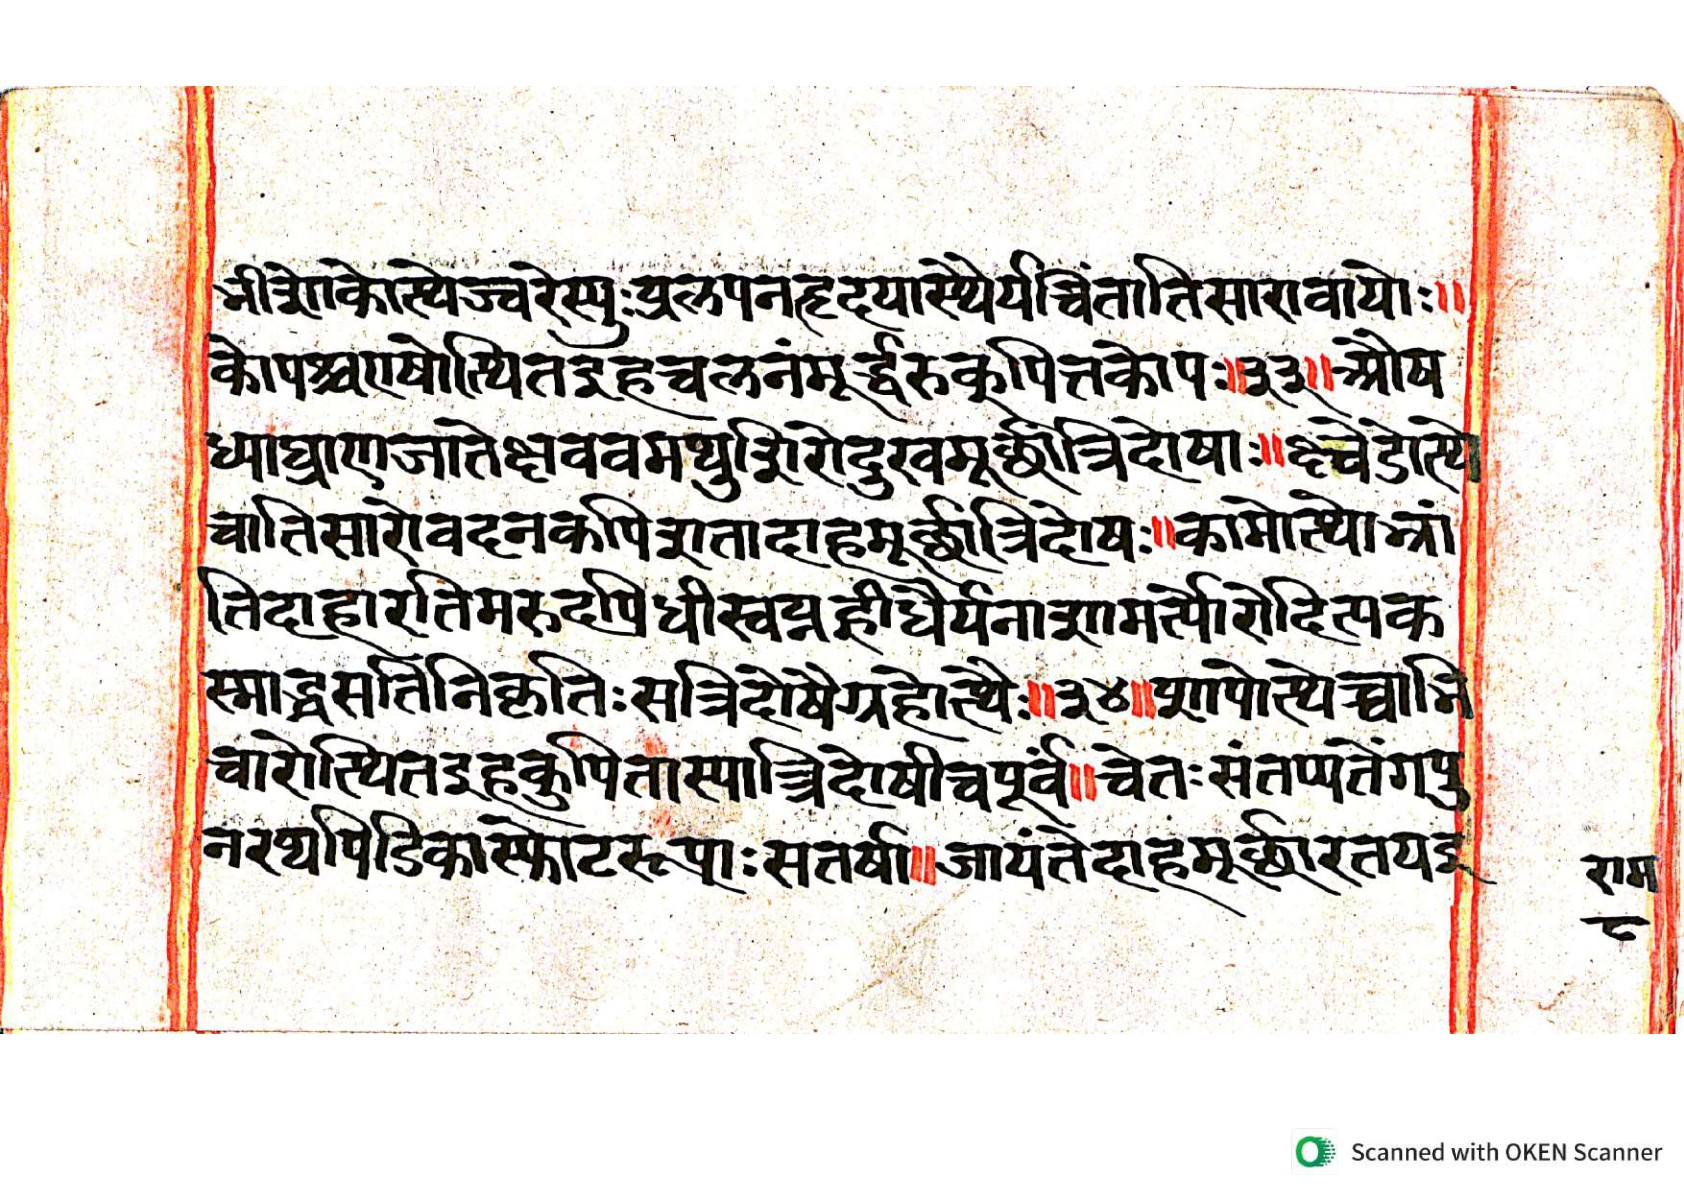 भीशोकोत्थेज्वरेस्युःप्रलपनहृदयास्थैर्यचिंतातिसारावायोः॥
कोपश्चरोषोत्थितइहचलनंमूर्द्धरुक्पित्तकोपः॥३३॥औष
ध्याघ्राणजातेक्षववमथुशिरोदुखमूर्छात्रिदोषाः॥क्ष्वेडोत्थे
चातिसारोवदनकपिशतादाहमूर्छात्रिदोषः॥कामोत्थोभ्रां
तिदाहारतिमरुदपिधीस्वप्नह्रीधैर्यनाशामर्त्योरोदित्यक
स्माद्धसतिनिकृतिःसत्रिदोषैग्रहोत्थैः॥३४॥शापोत्थेच्चाभि
चारोत्थितइहकुपितास्यात्त्रिदोषीचपूर्वं॥चेतःसंतप्यतेंगपु
नरथपिडिकास्फोटरूपाःसतर्षा॥जायंतेदाहमूर्छारतयइ
राम
८
Scanned with OKEN Scanner